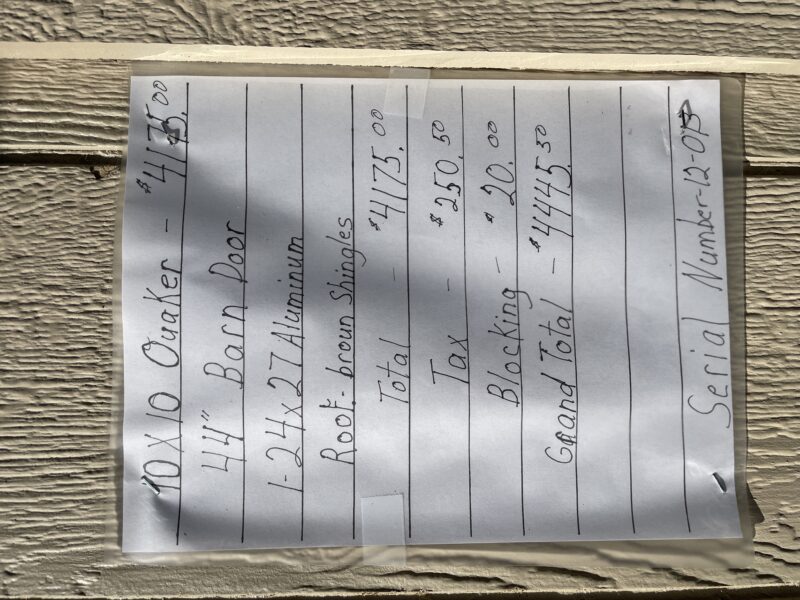 10 X 10 Quaker - $4175.00
44" Barn Door
1-24x27 Aluminum
Roof - broun Shingles
Total - $4175.00
Tax - $250.50
Blocking - $20.00
Grand Total - $4445.50
Serial Number-12-073